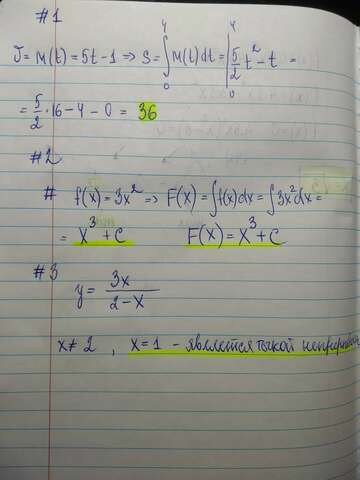 #1
V = м(t) = 5t - 1 => S = ∫₀⁴ м(t)dt = |₀⁴ 5/2 t² - t =
= 5/2 · 16 - 4 - 0 = 36
#2
# f(x) = 3x² => F(x) = ∫f(x)dx = ∫3x²dx =
= x³ + C F(x) = x³ + C
#3
y = 3x / 2 - x
x ≠ 2 , x = 1 - является точкой